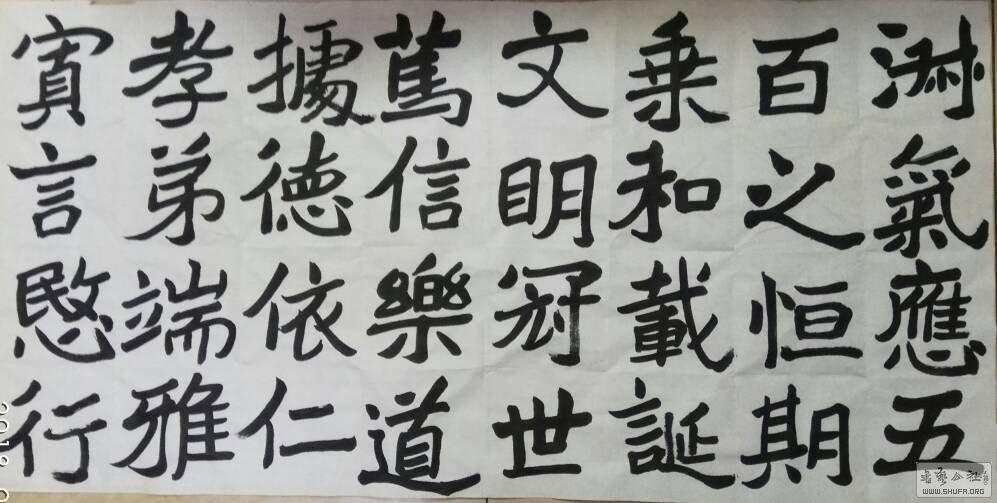 淑氣應五
百之恒期
乗和載誕
文明冠世
篤信樂道
據德依仁
孝弟端雅
寡言愍行
书艺公社
WWW.SHUFA.ORG